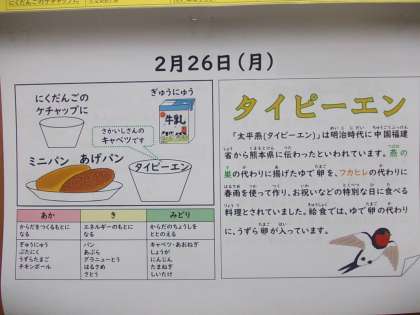 にくだんごの
ケチャップに
2月26日(月)
にくだんごの
ケチャップに
ぎゅうにゅう
牛乳
さかいしさんの
キャベツです
ミニパン
あげパン
タイピーエン
あか
き
みどり
からだをつくるもとに
なる
エネルギーのもとに
なる
からだのちょうしを
ととのえる
ぎゅうにゅう
ぶたにく
うずらたまご
チキンボール
パン
あぶら
グラニューとう
はるさめ
さとう
キャベツ・あおねぎ
しょうが
にんじん
たまねぎ
しいたけ
タイピーエン
「太平燕(タイピーエン)」は明治時代に中国福建
省から熊本県に伝わったといわれています。燕の
巣の代わりに揚げたゆで卵を、フカヒレの代わりに
春雨を使って作り、お祝いなどの特別な日に食べる
料理とされていました。給食では、ゆで卵の代わり
に、うずら卵が入っています。